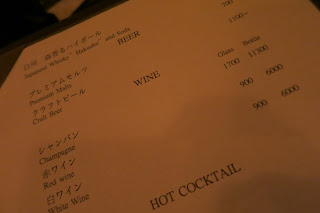 700
白州 森香るハイボール
Japanese Whisky "Hakushu" and Soda
1100～
BEER
プレミアムモルツ
Premium Malts
クラフトビール
Craft Beer
WINE
Glass Bottle
シャンパン 1700 11500
Champagne
赤ワイン 900 6000
Red wine
白ワイン 900 6000
White Wine
HOT COCKTAIL